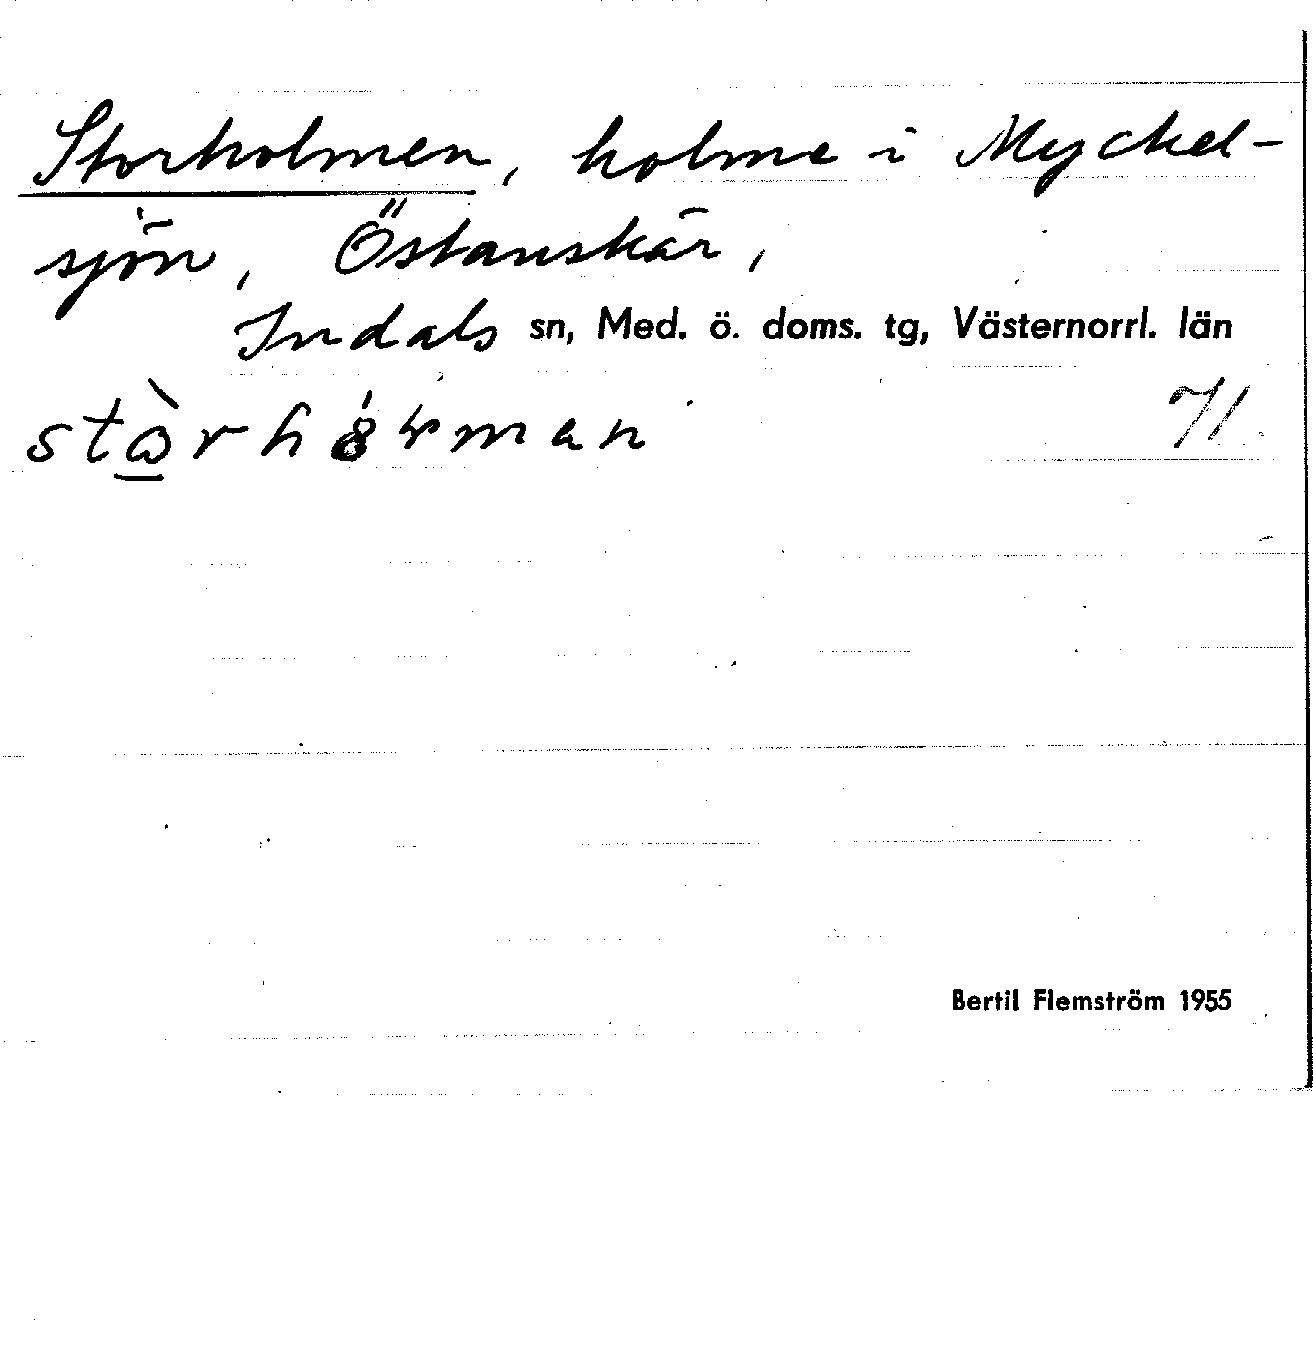 Storholmen, holme i Myckel-
sjön, Östanskär,
Indals sn, Med. ö. doms. tg, Västernorrl. län
71
Bertil Flemström 1955